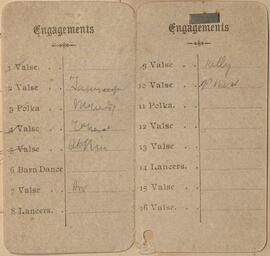 Engagements
1 Valse . .
2 Valse . .
3 Polka . .
4 Valse . .
5 Valse . .
6 Barn Dance
7 Valse . .
8 Lancers. .
Engagements
9 Valse . . Kelly
10 Valse . .
11 Polka. . .
12 Valse . .
13 Valse . .
14 Lancers. .
15 Valse . .
16 Valse . .